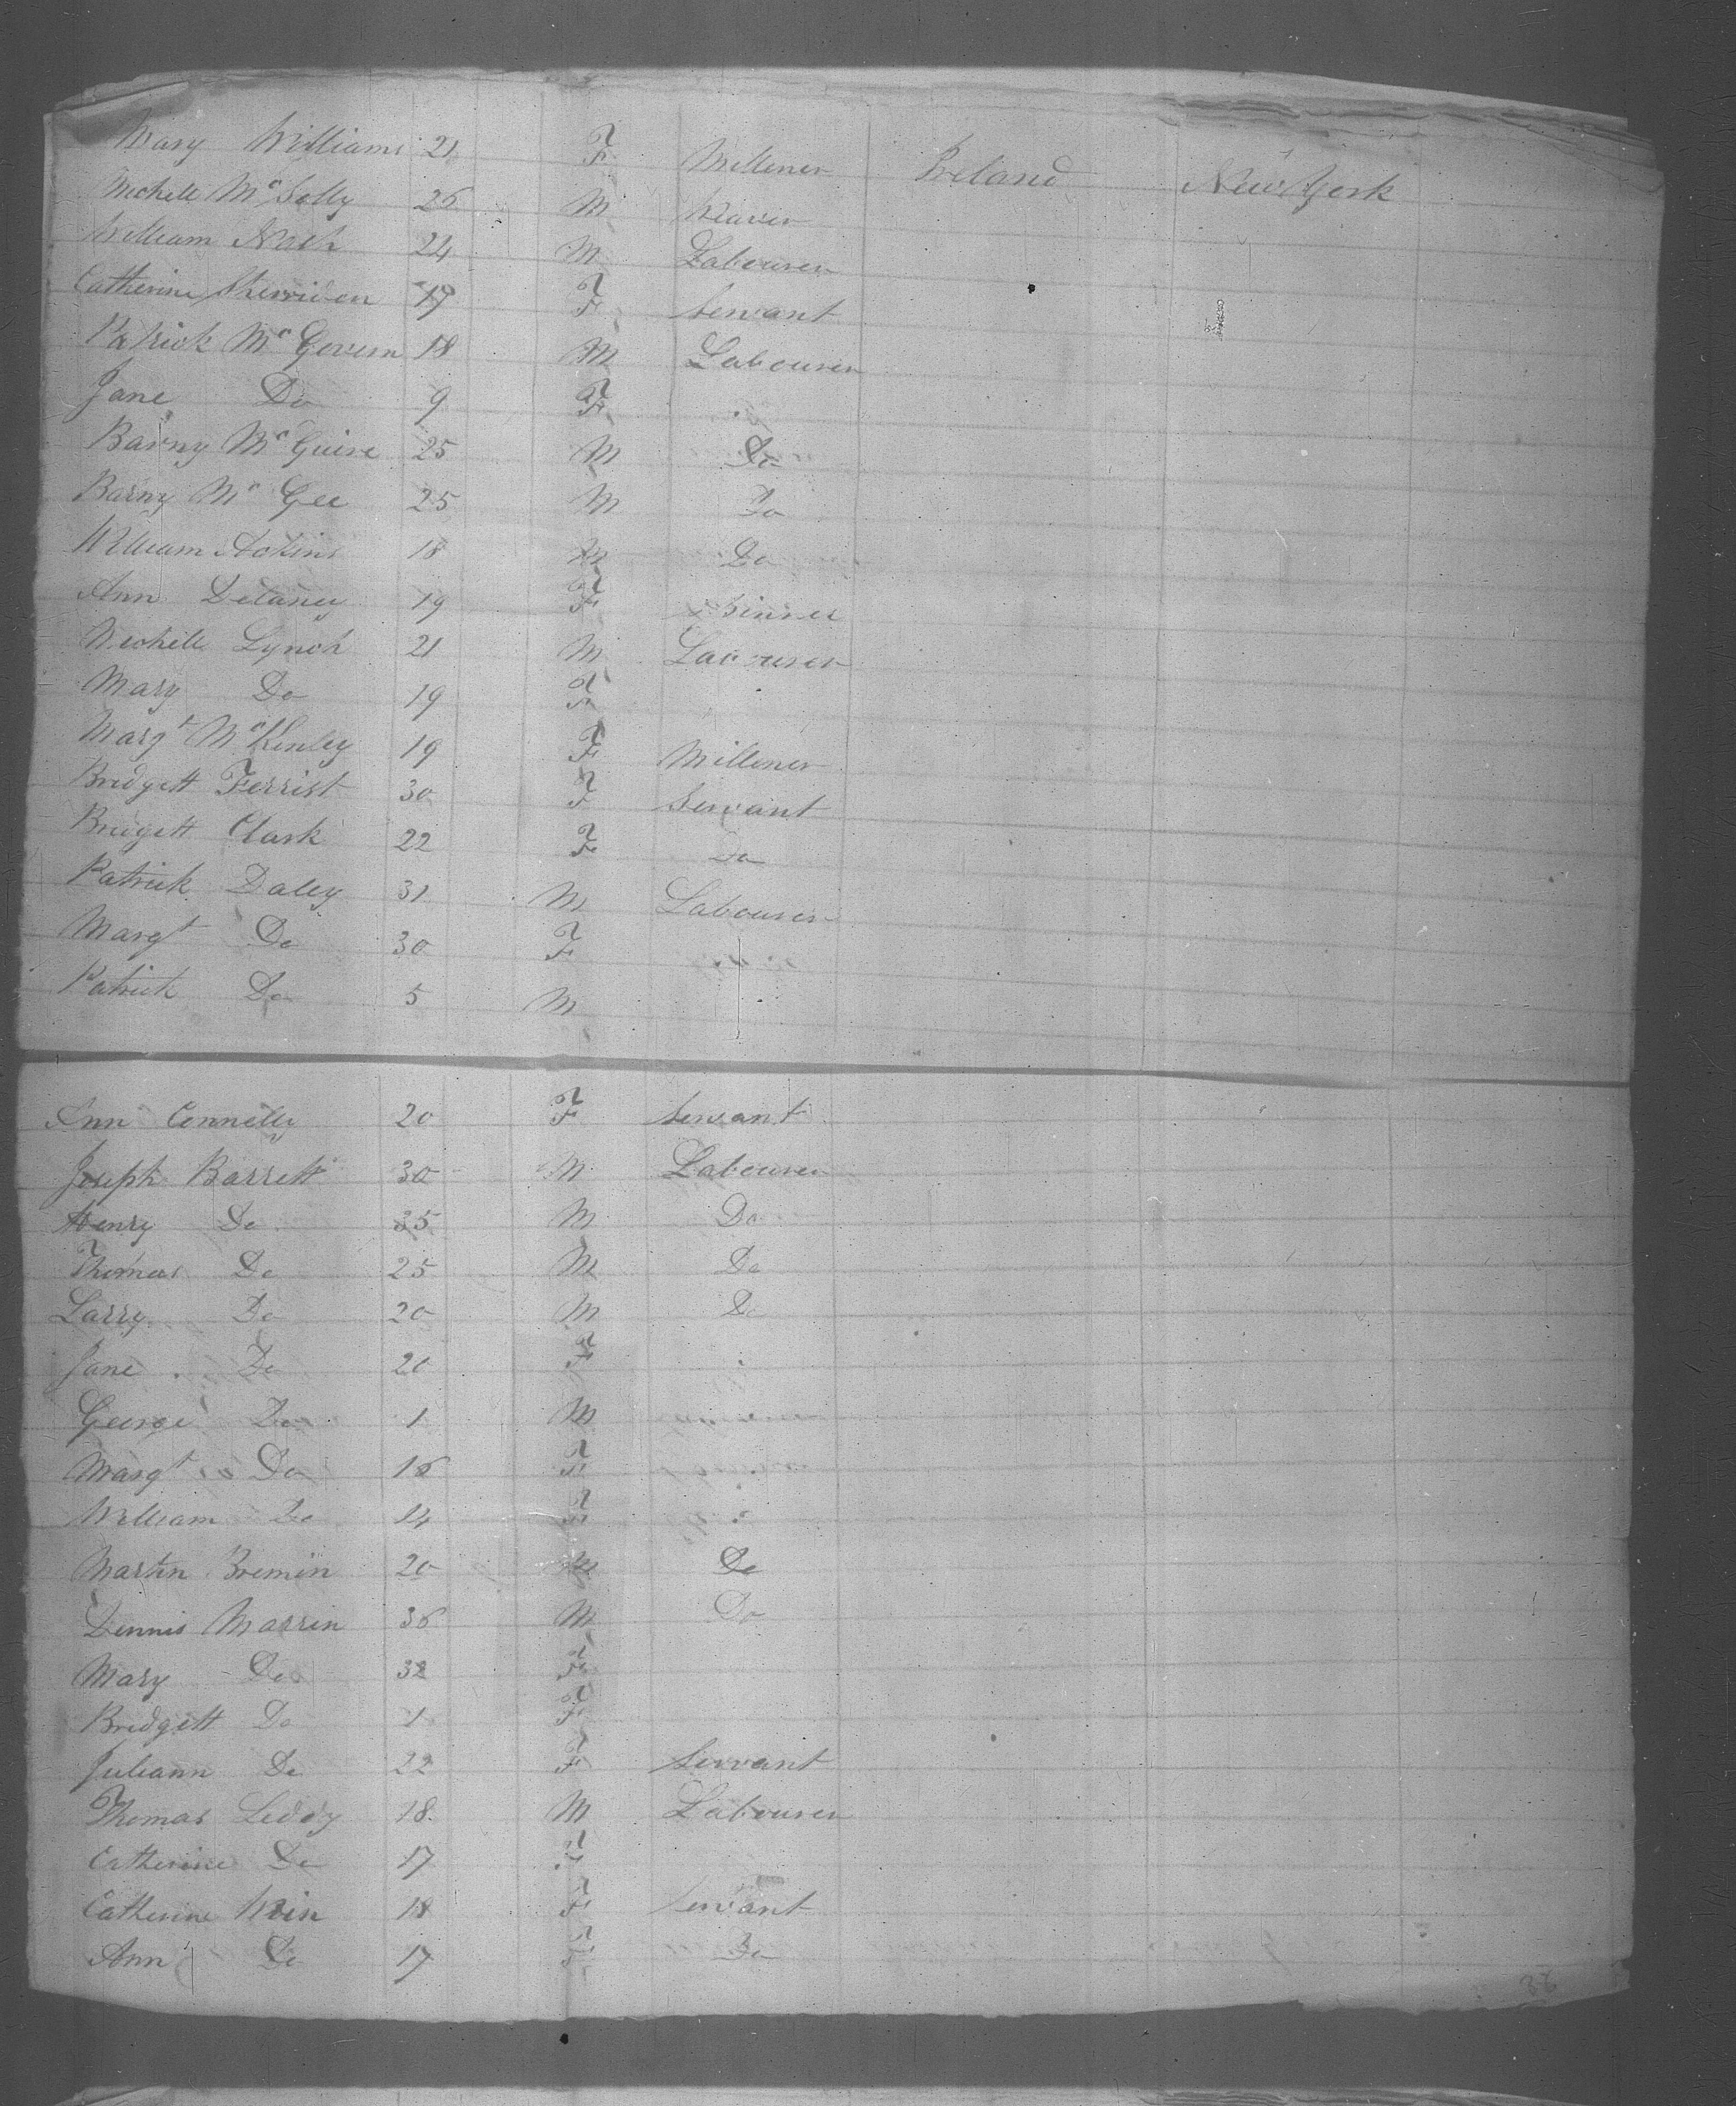 Mary Williams 21 F Millener Ireland New York
Mechell McSolly 26 M Weaver
William Nash 24 M Labourer
Catherine Sherriden 19 F Servant
Patrick McGovern 18 M Labourer
Jane Do 9 F
Barny McGuire 25 M Do
Barny McGee 25 M Do
William Askins 18 M Do
Ann Delaney 19 F
Mechell Lynch 21 M Labourer
Mary Do 19 F
Margt McKenley 19 F Millener
Bridgett Ferrist 30 F Servant
Bridgett Clark 22 F Do
Patrick Daley 31 M Labourer
Margt Do 30 F
Patrick Do 5 M
Ann Connelly 20 F Servant
Joseph Barrett 30 M Labourer
Henry Do 35 M Do
Thomas Do 25 M Do
Larry Do 20 M Do
Jane Do 20 F
George Do 1 M
Margt Do 16 F
William Do 14 F
Martin Bremin 20 M Do
Dennis Marrin 36 M Do
Mary Do 32 F
Bridgett Do 1 F
Juliann Do 22 F Servant
Thomas Leddy 18 M Labourer
Catherine Do 17 F
Catherine Win 18 F Servant
Ann Do 17 F Do